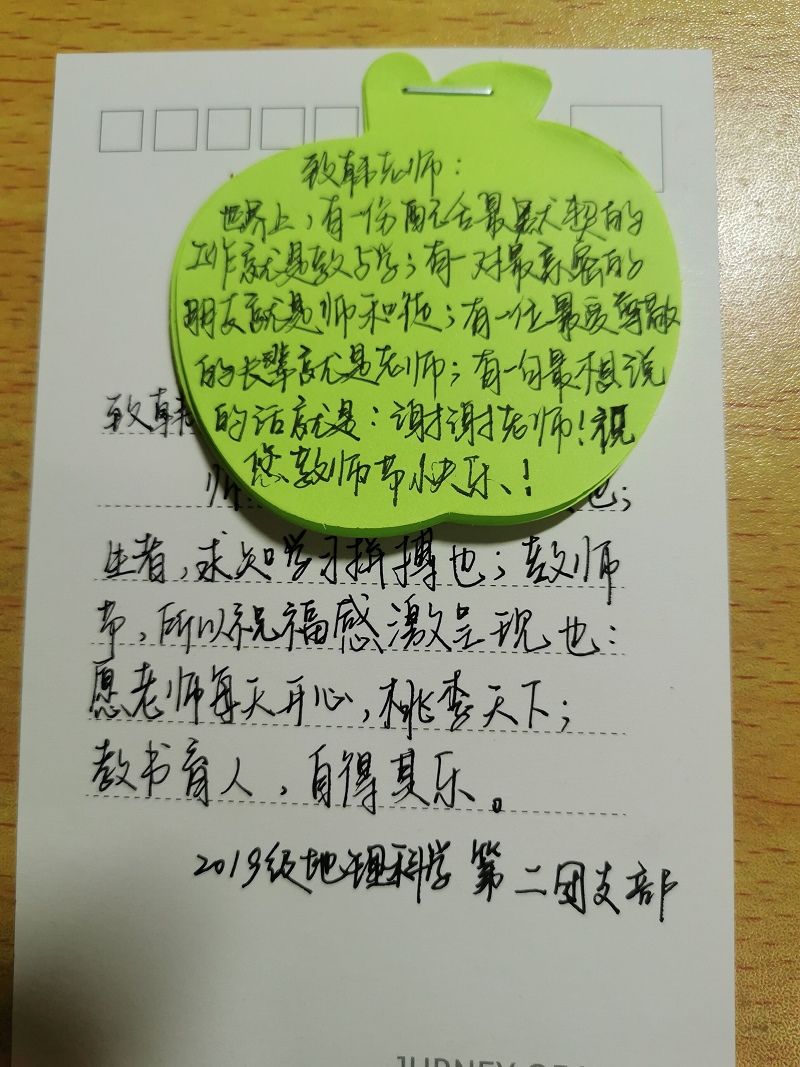 致韩老师：
世界上，有一份配合最默契的
工作就是教与学；有一对最亲密的
朋友就是师和徒；有一位最受尊敬
的长辈就是老师；有一句最想说
的话就是：谢谢老师！祝
您教师节快乐！
致韩
师
也；
生者，求知学习拼搏也；教师
节，所以祝福感激呈现也：
愿老师每天开心，桃李天下；
教书育人，自得其乐。
2019级地理科学 第二团支部